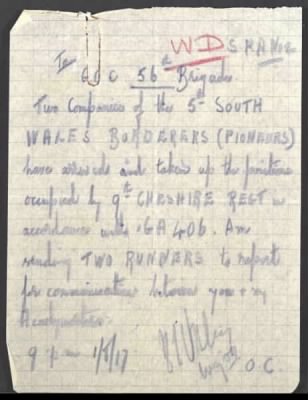 WD
To
G O C 56th Brigade.
Two Companies of the 5th SOUTH
WALES BORDERERS (PIONEERS)
have arrived and taken up the positions
occupied by 9th CHESHIRE REGT in
accordance with GA 406. Am
sending TWO RUNNERS to report
for communication between you & my
Headquarters.
9 pm 1/8/17
O C.